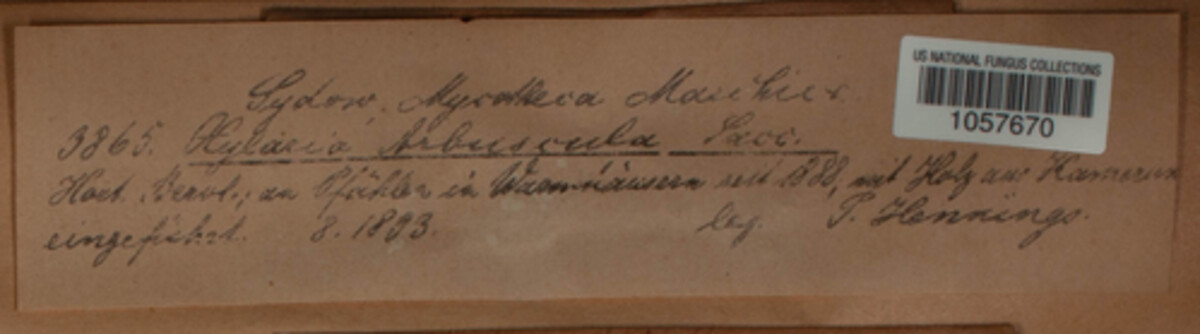 Sydow, Mycotheca Marchica
3865. Xylaria Arbuscula Sacc.
Hort. Berol.; an Pfählen in Warmhäusern seit 1888, mit Holz aus Kamerun
eingeführt. 8. 1893. leg. P. Hennings.
US NATIONAL FUNGUS COLLECTIONS
1057670